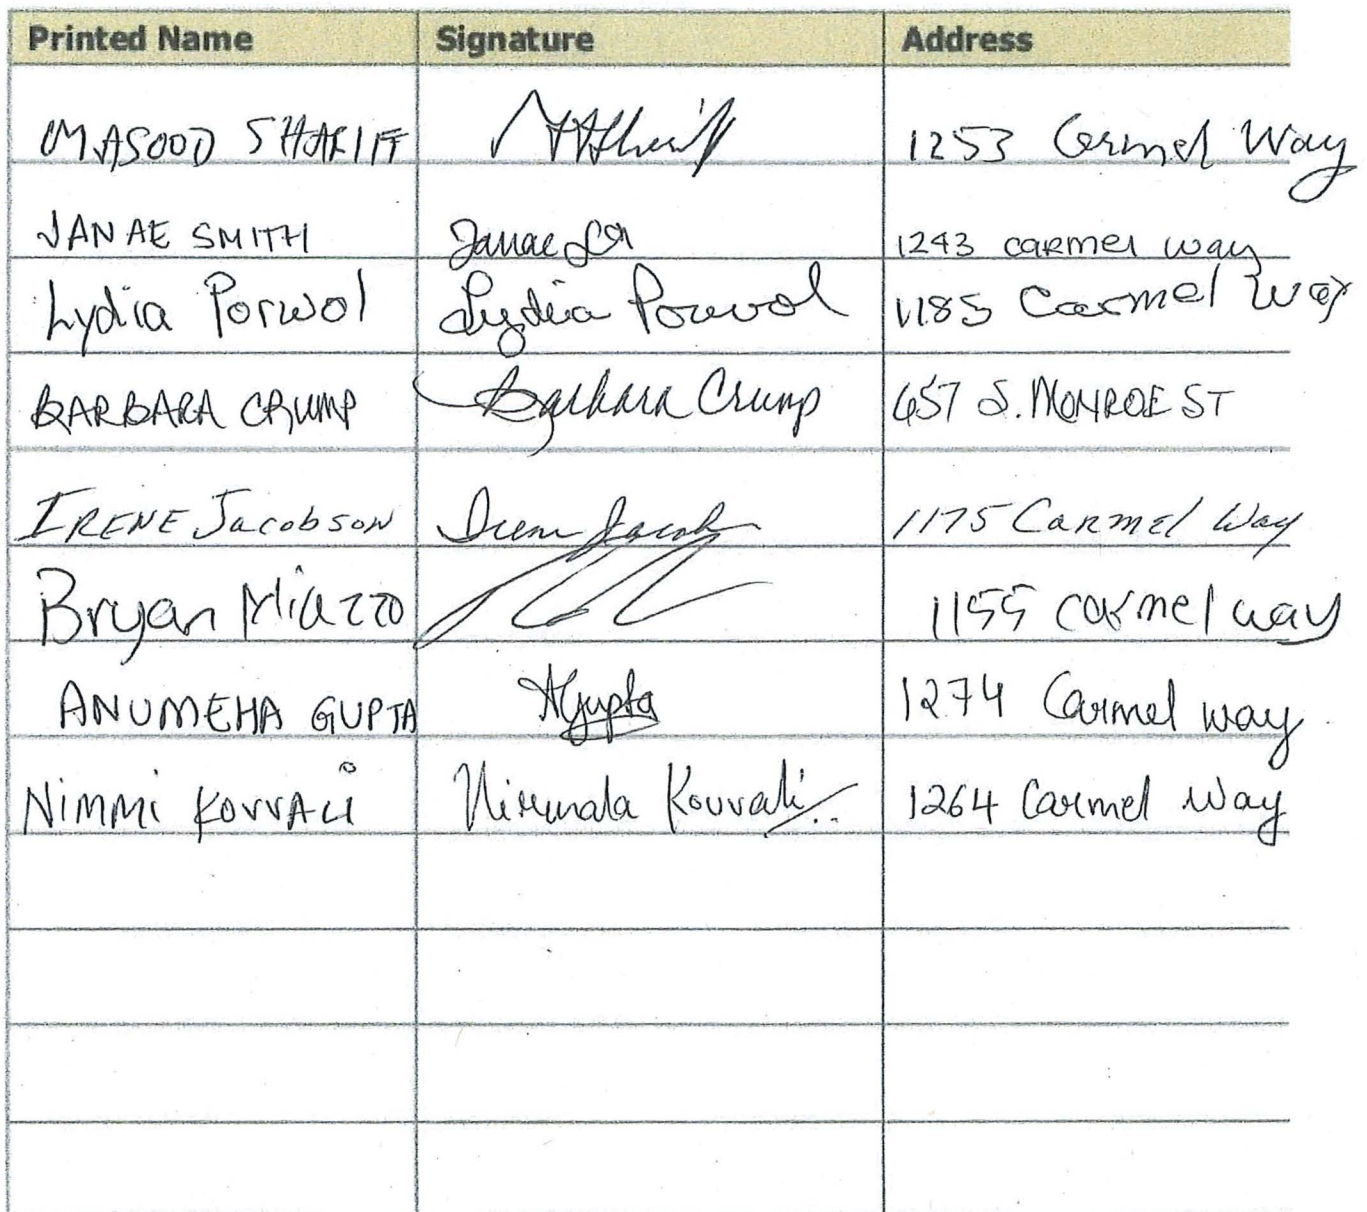 Printed Name Signature Address
MASOOD SHARIFF 1253 Carmel Way
JANAE SMITH Janae 1243 carmel way
Lydia Porwol Lydia Porwol 1185 Carmel Way
BARBARA CRUMP Barbara Crump 657 S. MONROE ST
IRENE Jacobson Irene Jacob 1175 Carmel Way
Bryan Miazzo 1155 carmel way
ANUMEHA GUPTA AGupta 1274 Carmel way
Nimmi KOVVALi Nirmala Kovvali 1264 Carmel Way